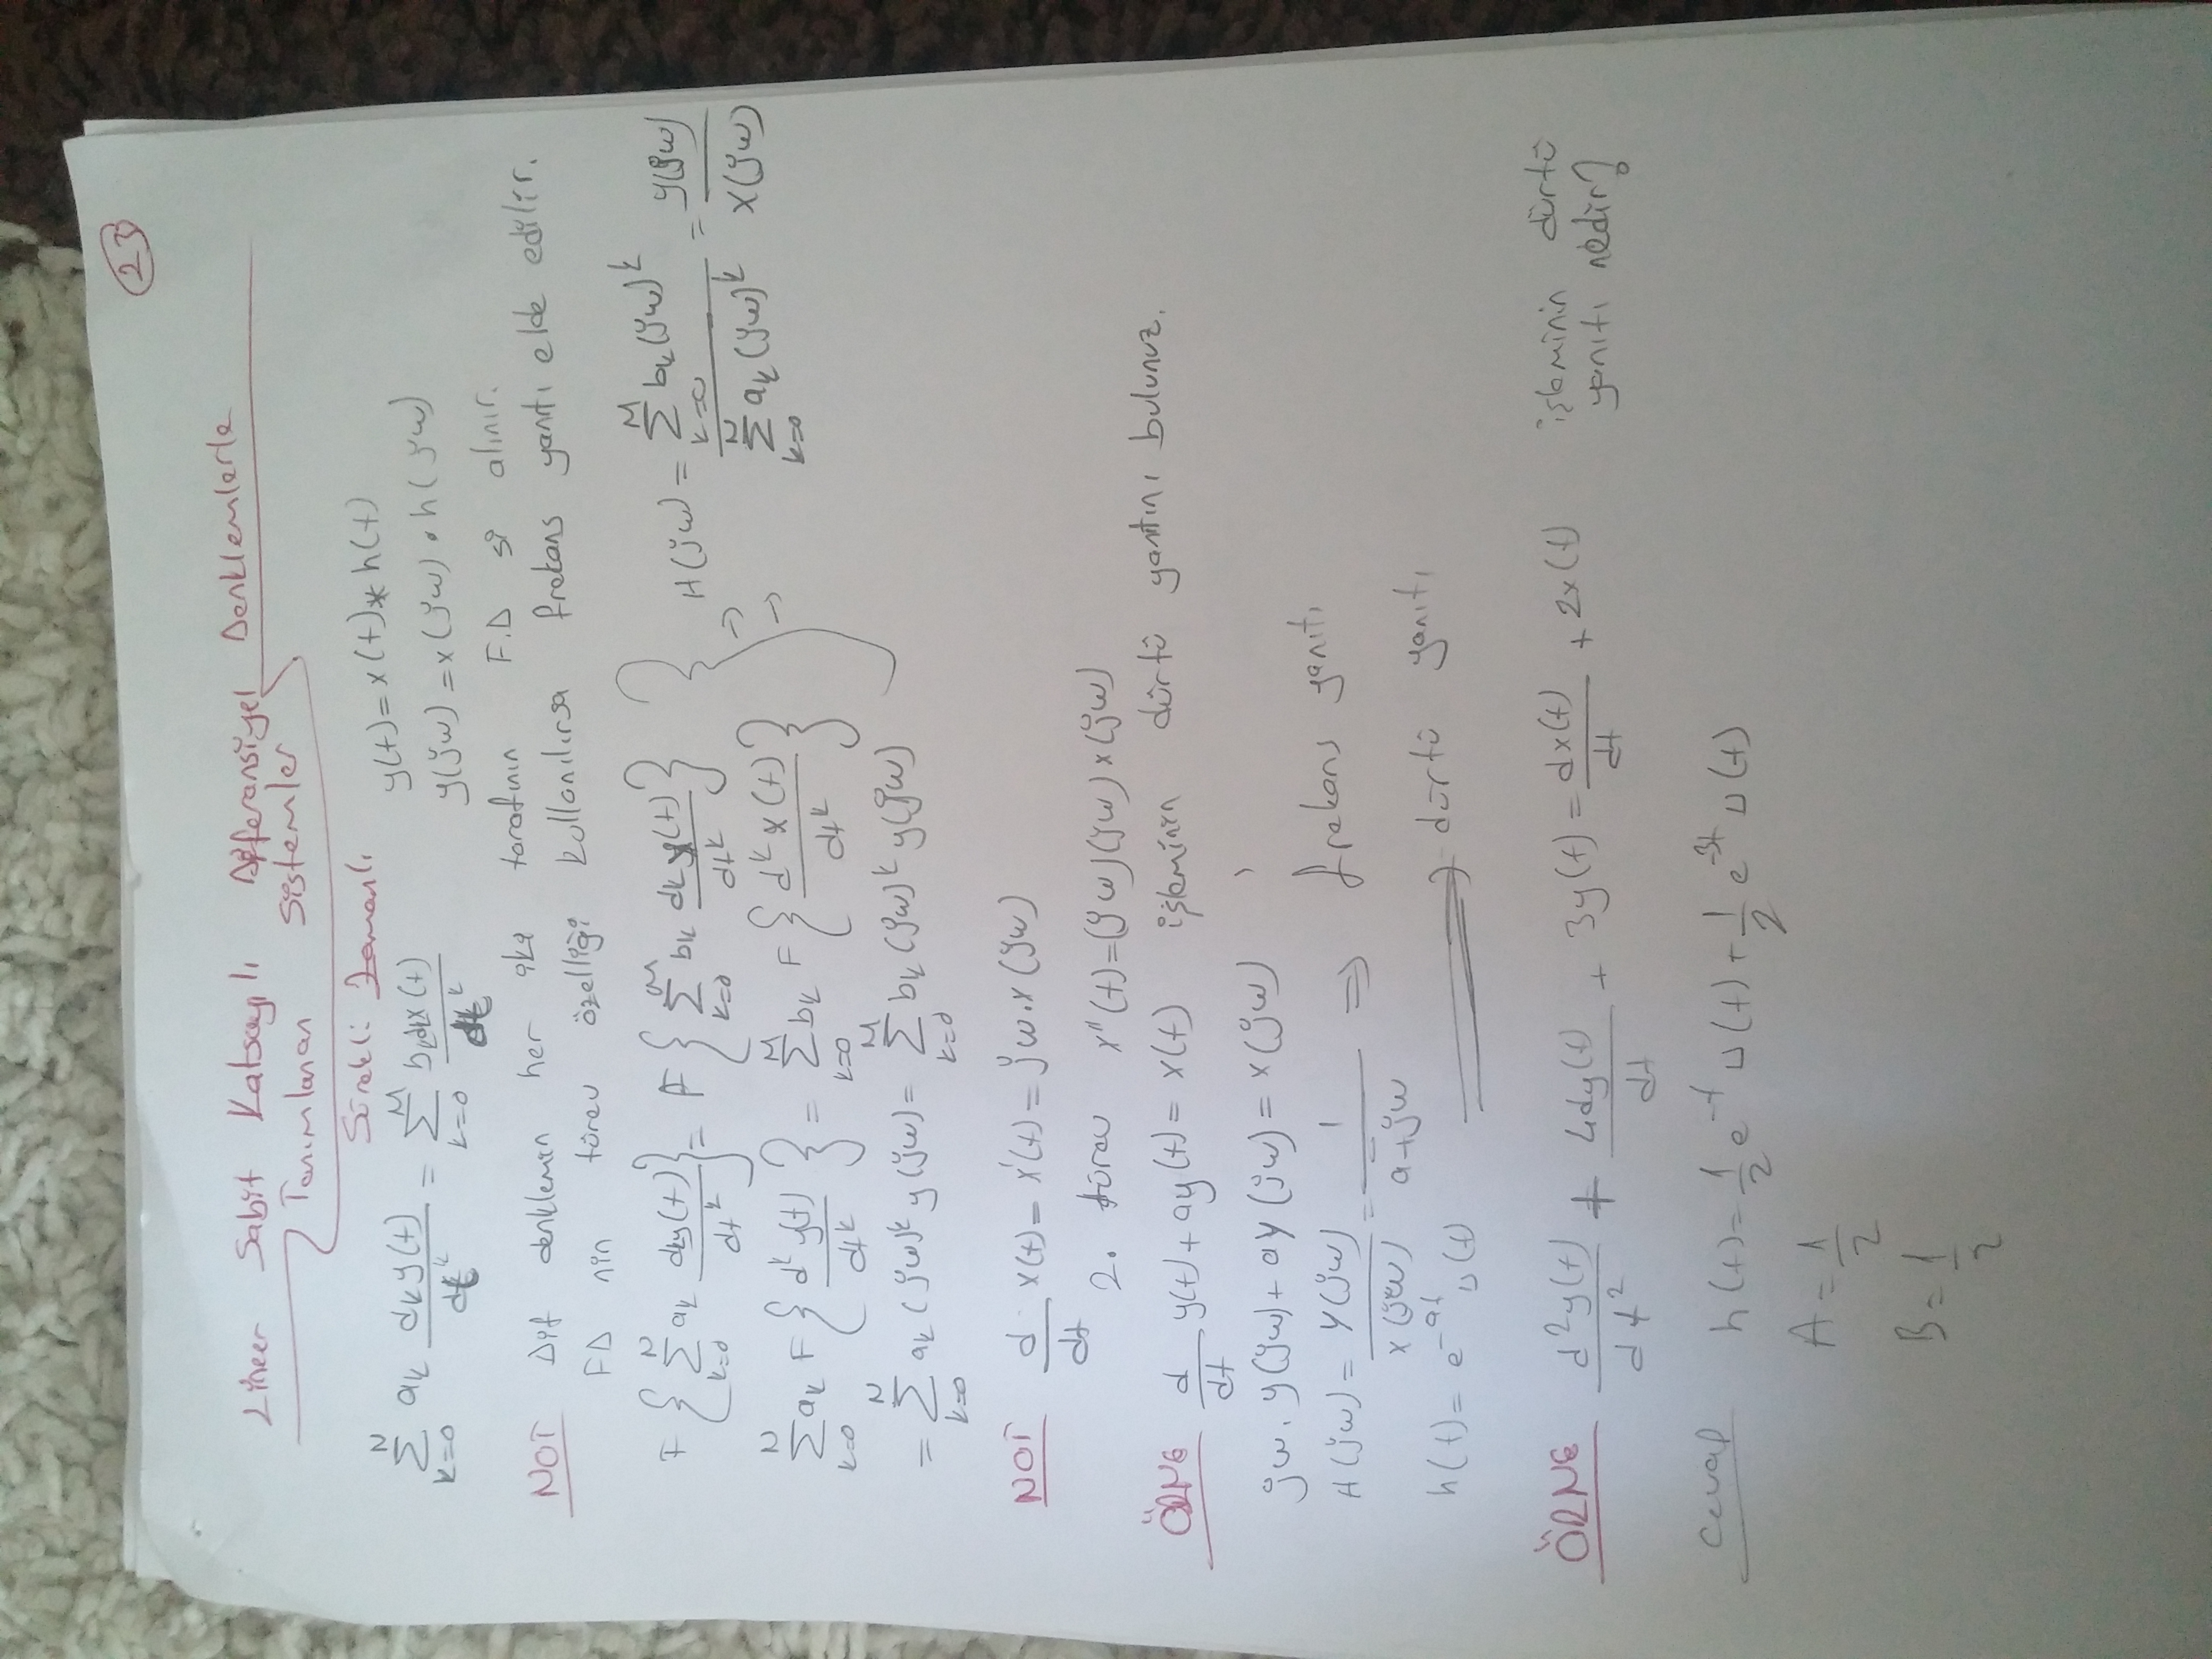 23
Lineer Sabit Katsayılı Differansiyel Denklemlerle
Tanımlanan Sistemler
Sürekli Zamanlı
y(t) = x(t) * h(t)
y(jw) = x(jw) . h(jw)
N∑k=0 ak dky(t)/dt^k = M∑k=0 bkdkx(t)/dt^k
NOT Dif denklemin her iki tarafının F.D si alınır.
FD nin türev özelliği kullanılırsa frekans yanıtı elde edilir.
F{N∑k=0 ak dky(t)/dt^k} = F{M∑k=0 bk dky(t)/dt^k}
N∑k=0 ak F{d^k y(t)/dt^k} = M∑k=0 bk F{d^k x(t)/dt^k}
= N∑k=0 ak (jw)^k y(jw) = M∑k=0 bk (jw)^k y(jw)
H(jw) = M∑k=0 bk(jw)^k / N∑k=0 ak(jw)^k = y(jw)/x(jw)
NOT d/dt x(t) = x'(t) = jw.x(jw)
2. türev x''(t) = (jw)(jw) x(jw)
ÖRNG d/dt y(t) + ay(t) = x(t) işleminin dürtü yanıtını bulunuz.
jw. y(jw) + ay(jw) = x(jw)
H(jw) = y(jw)/x(jw) = 1/a+jw => frekans yanıtı
h(t) = e^-at u(t) → dürtü yanıtı
ÖRNG d^2y(t)/dt^2 + 4dy(t)/dt + 3y(t) = dx(t)/dt + 2x(t) işleminin dürtü
yanıtı nedir?
Cevap h(t) = 1/2 e^-t u(t) + 1/2 e^-3t u(t)
A = 1/2
B = 1/2